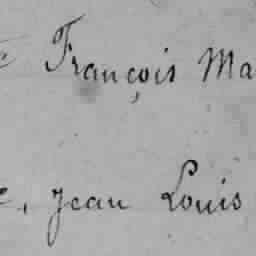 François Ma
, Jean Louis